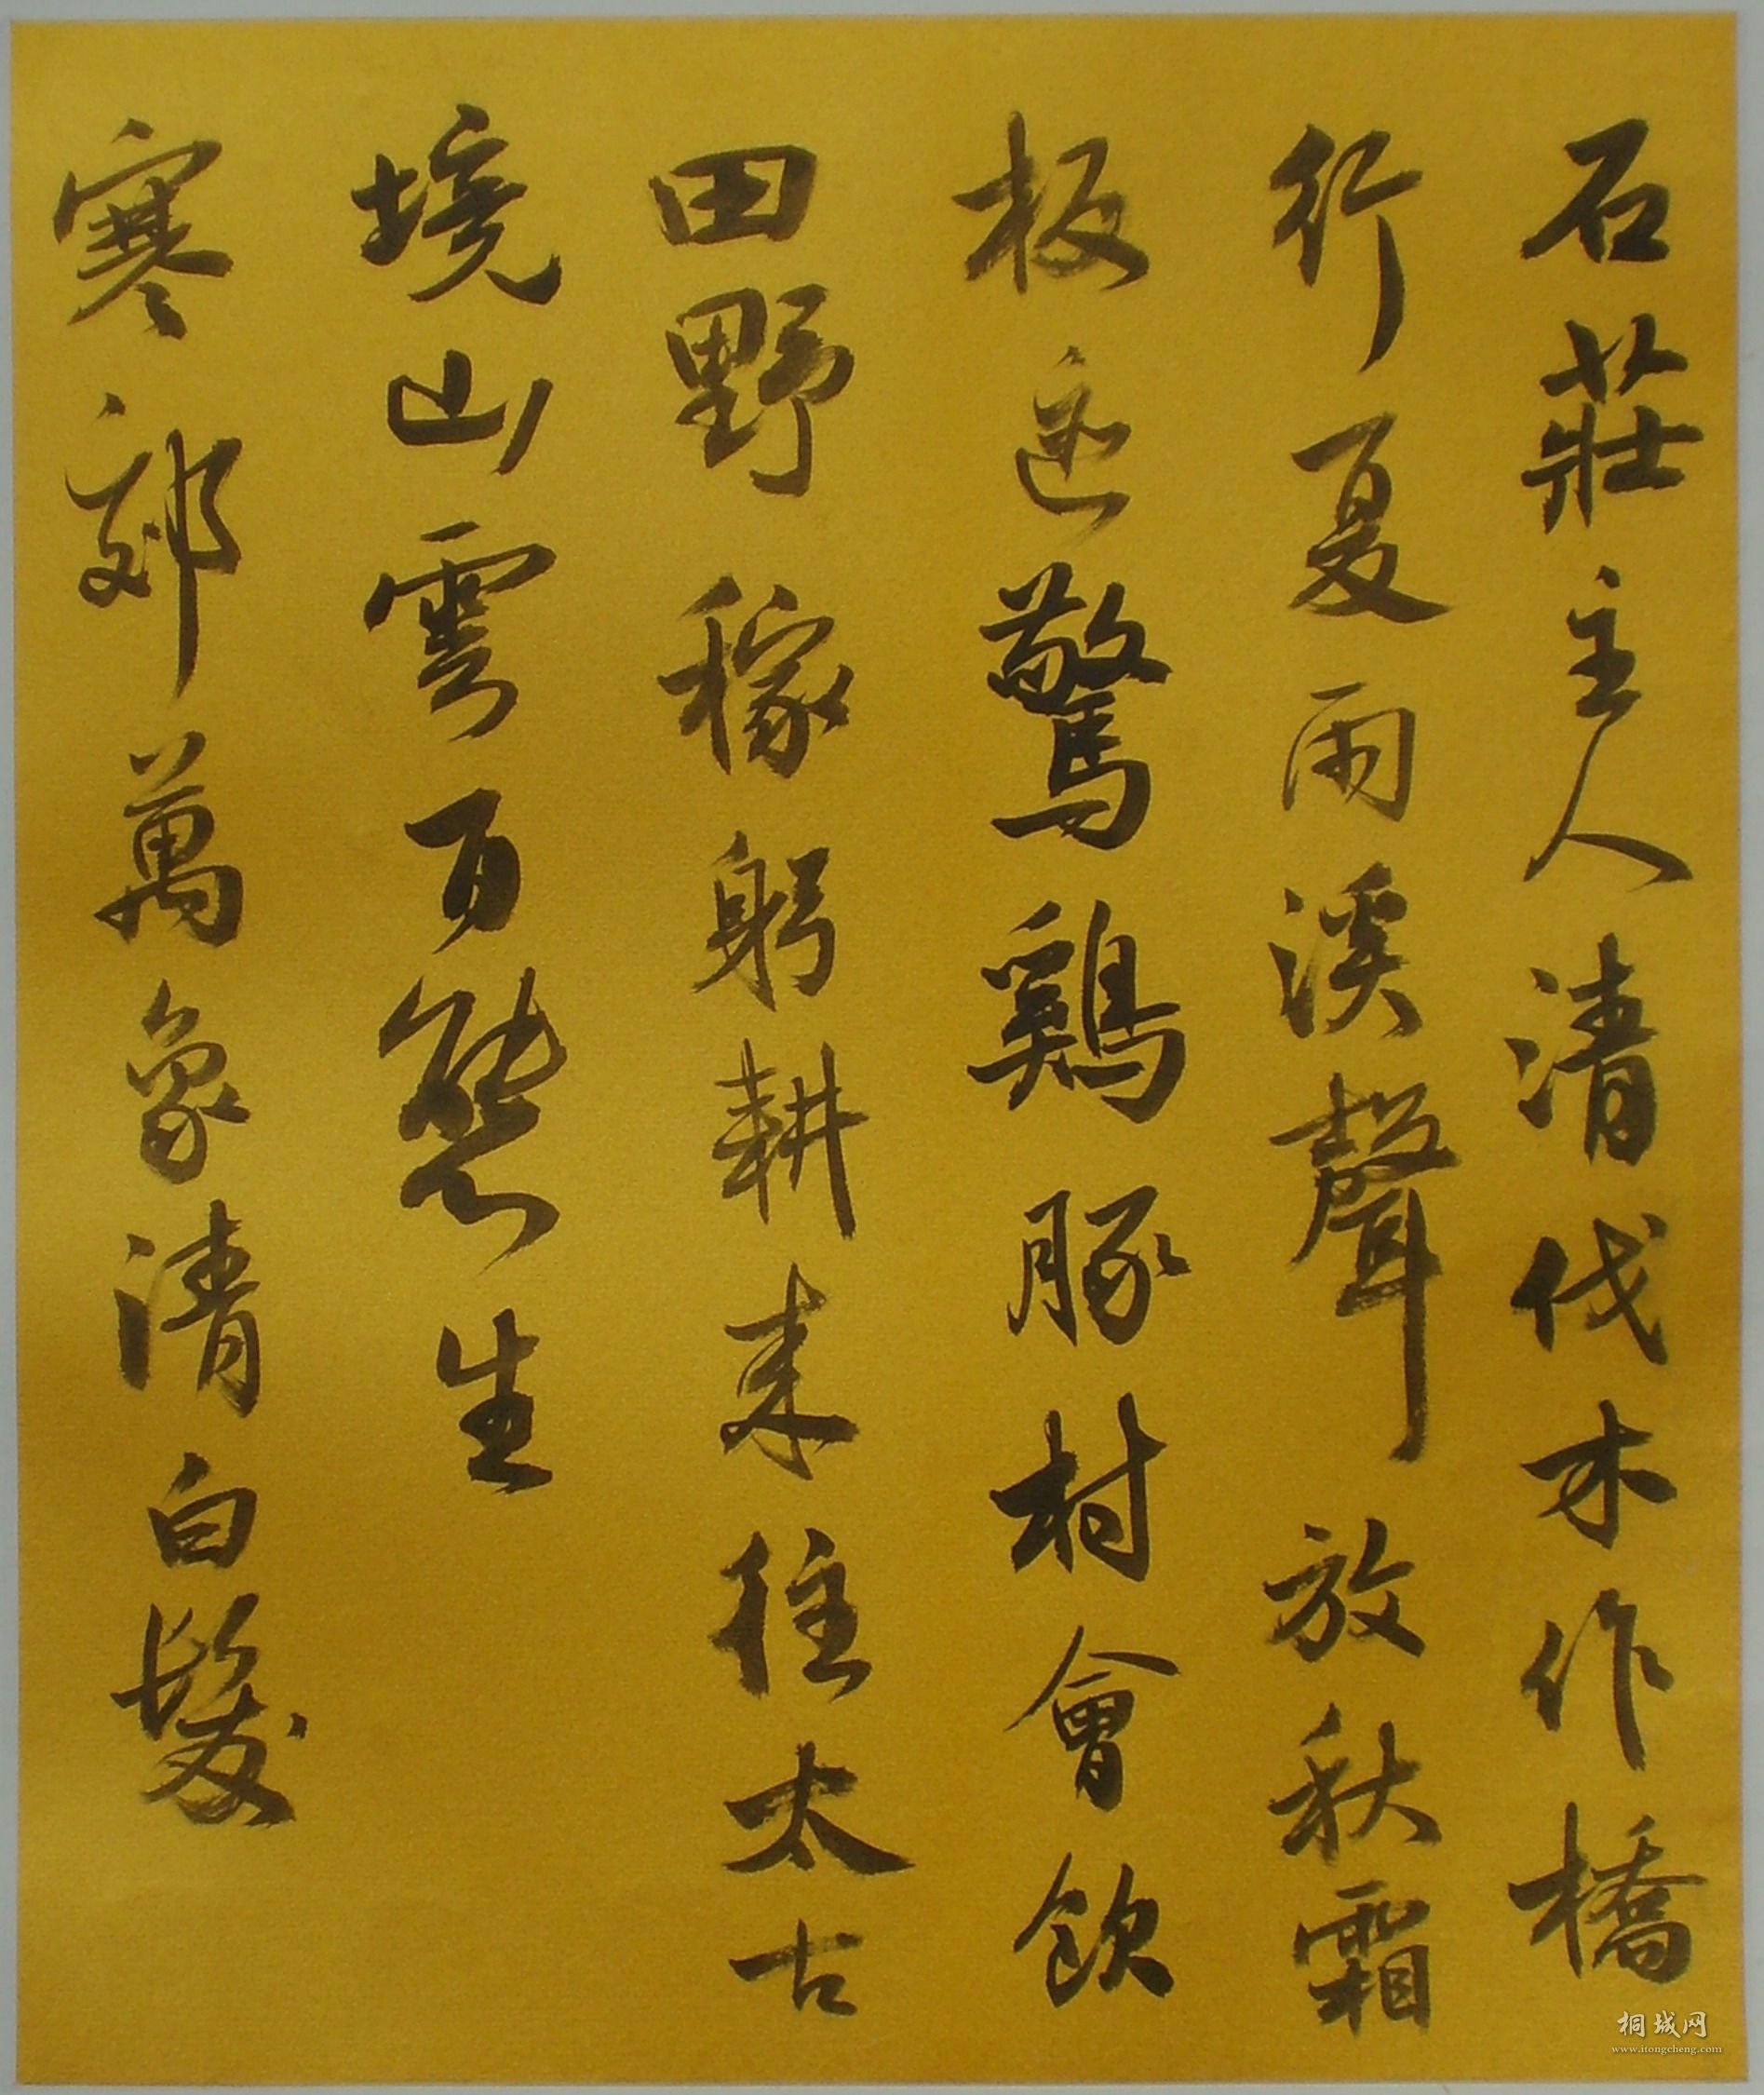 石莊主人清伐木作橋
行夏雨溪聲放秋霜
板迹驚鷄豚村會飲
田野稼躬耕來往太古
境山雲百態生
寒郊萬象清白髮
桐城网
www.itongcheng.com